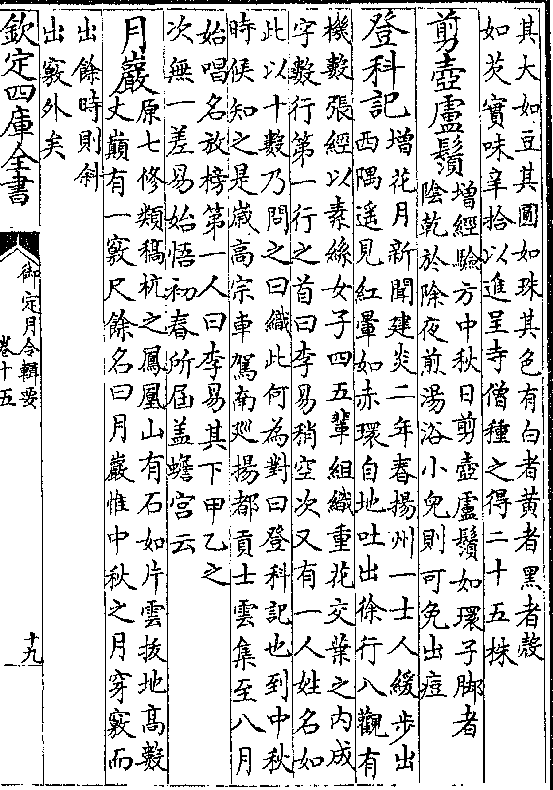 其大如豆其圓如珠其色有白者黄者黑者殻
如芡實味辛拾以進呈寺僧種之得二十五株
剪壺盧鬚
增經驗方中秋日剪壺盧鬚如環子脚者
陰乾於除夜煎湯浴小兒則可免出痘
登科記
增花月新聞建炎二年春揚州一士人緩步出
西隅遥見紅暈如赤環自地吐出徐行入觀有
機數張經以素絲女子四五輩組織重花交葉之内成
字數行第一行之首曰李易稍空次又有一人姓名如
此以十數乃問之曰織此何為對曰登科記也到中秋
時候知之是嵗高宗車駕南廵揚都貢士雲集至八月
始唱名放榜第一人曰李易其下甲乙之
次無一差易始悟初春所届盖蟾宫云
月巖
原七修類稿杭之鳳凰山有石如片雲拔地髙數
丈巔有一竅尺餘名曰月巖惟中秋之月穿竅而
出餘時則斜
出竅外矣
欽定四庫全書
御定月令輯要
卷十五
十九